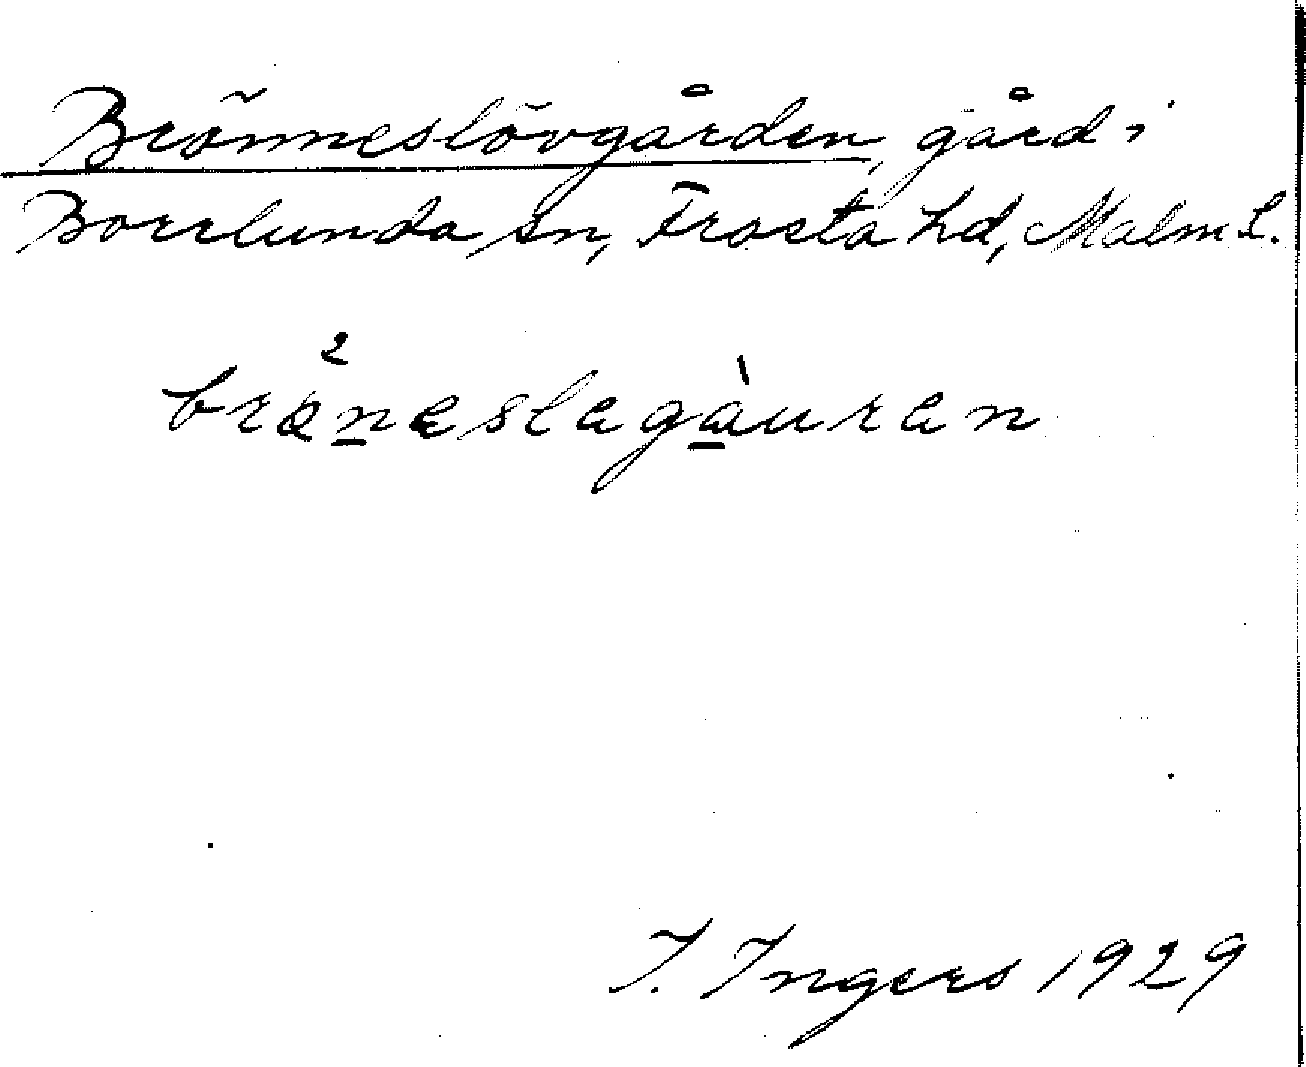 Brönneslövgården, gård i
Borrlunda sn, Frosta hd, Malm. L.
bröneslagàuren
I. Ingers 1929